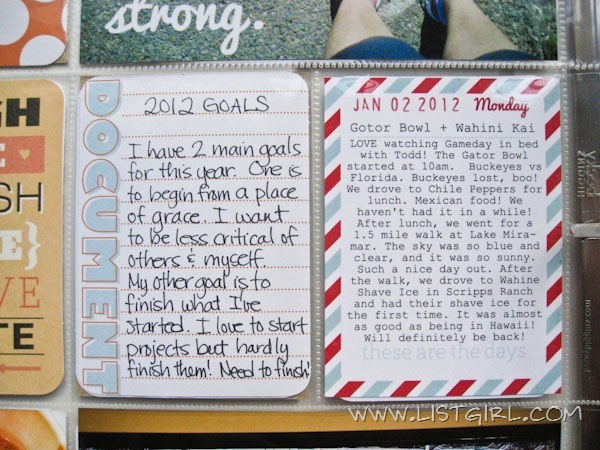 strong.
GH
E
SH
E}
VE
TE
DOCUMENT
2012 GOALS
I have 2 main goals
for this year. One is
to begin from a place
of grace. I want
to be less critical of
others & myself.
My other goal is to
finish what I've
started. I love to start
projects but hardly
finish them! Need to finish!
JAN 02 2012 Monday
Gotor Bowl + Wahini Kai
LOVE watching Gameday in bed
with Todd! The Gator Bowl
started at 10am. Buckeyes vs
Florida. Buckeyes lost, boo!
We drove to Chile Peppers for
lunch. Mexican food! We
haven't had it in a while!
After lunch, we went for a
1.5 mile walk at Lake Mira-
mar. The sky was so blue and
clear, and it was so sunny.
Such a nice day out. After
the walk, we drove to Wahine
Shave Ice in Scripps Ranch
and had their shave ice for
the first time. It was almost
as good as being in Hawaii!
Will definitely be back!
these are the days
WWW.LISTGIRL.COM